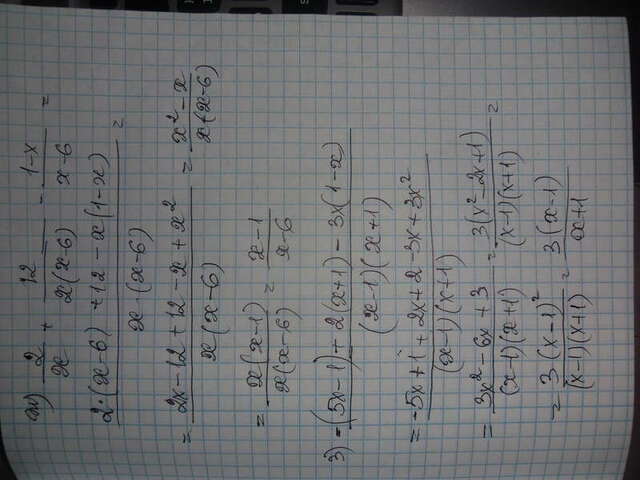 ж) 2/x + 12/x(x-6) - 1-x/x-6 =
2·(x-6) +12 - x(1-x)/x·(x-6) =
= 2x-12+12-x+x²/x(x-6) = x²-x/x(x-6)
= x(x-1)/x(x-6) = x-1/x-6
з) -(5x-1)+2(x+1)-3x(1-x)/(x-1)(x+1)
= -5x+1+2x+2-3x+3x²/(x-1)(x+1)
= 3x²-6x+3/(x-1)(x+1) = 3(x²-2x+1)/(x-1)(x+1) =
= 3(x-1)²/(x-1)(x+1) = 3(x-1)/x+1